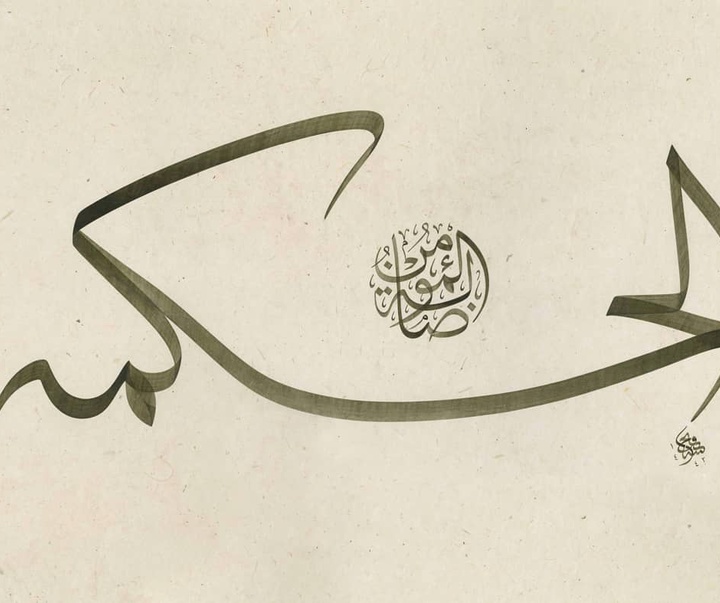 الحكمة
ضالة المؤمن